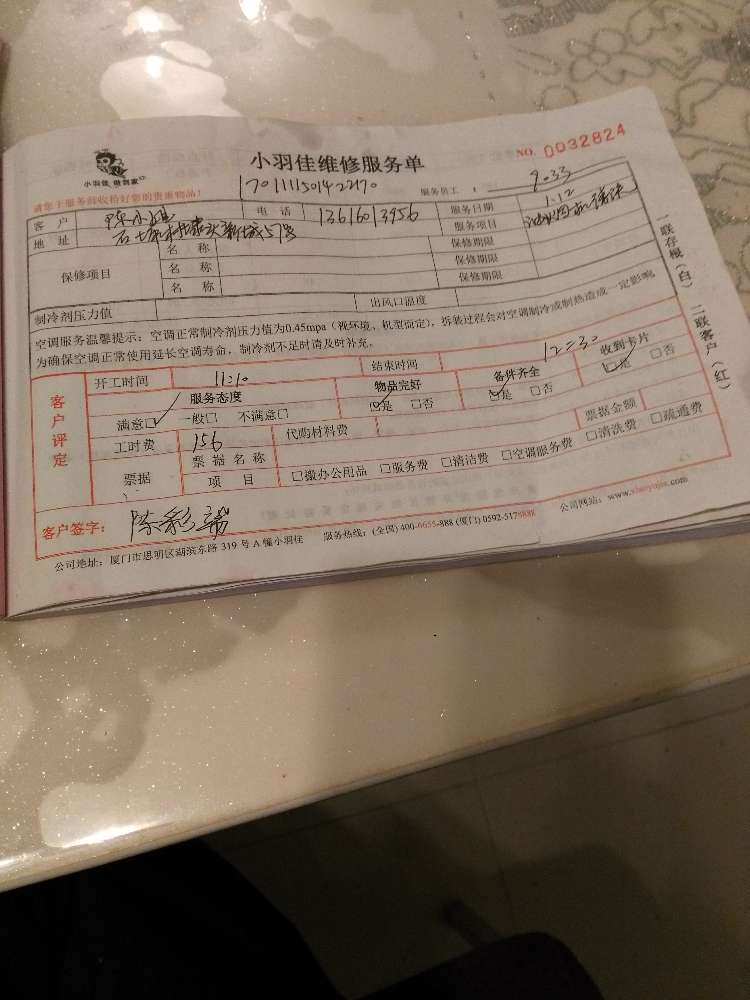 小羽佳 做到家
小羽佳维修服务单
NO. 0032824
请您于服务前收拾好您的贵重物品!
1701111501422170
服务员工: 9033
客户 陈小姐 电话 13616013956 服务日期 1.12
地址 57号 服务项目 油烟机清洗
保修项目
名称 保修期限
名称 保修期限
名称 保修期限
制冷剂压力值 出风口温度
空调服务温馨提示:空调正常制冷剂压力值为0.45mpa(视环境、机型而定),拆装过程会对空调制冷或制热造成一定影响
为确保空调正常使用延长空调寿命,制冷剂不足时请及时补充。
客户评定
开工时间 11:10 结束时间 12=30
服务态度 物品完好 备件齐全 收到卡片
满意☑ 一般□ 不满意□ ☑是 □否 ☑是 □否 ☑是 □否
工时费 156 代购材料费
票据 票据名称 票据金额
项目 □缴办公用品 □服务费 □清洁费 □空调服务费 □清洗费 □疏通费
客户签字: 陈彩端
公司地址:厦门市思明区湖滨东路 319 号 A 幢小羽佳 服务热线:(全国) 400-6655-888 (厦门) 0592-5178888 公司网站:www.xiaoyujia.com
一联存根(白) 二联客户(红)